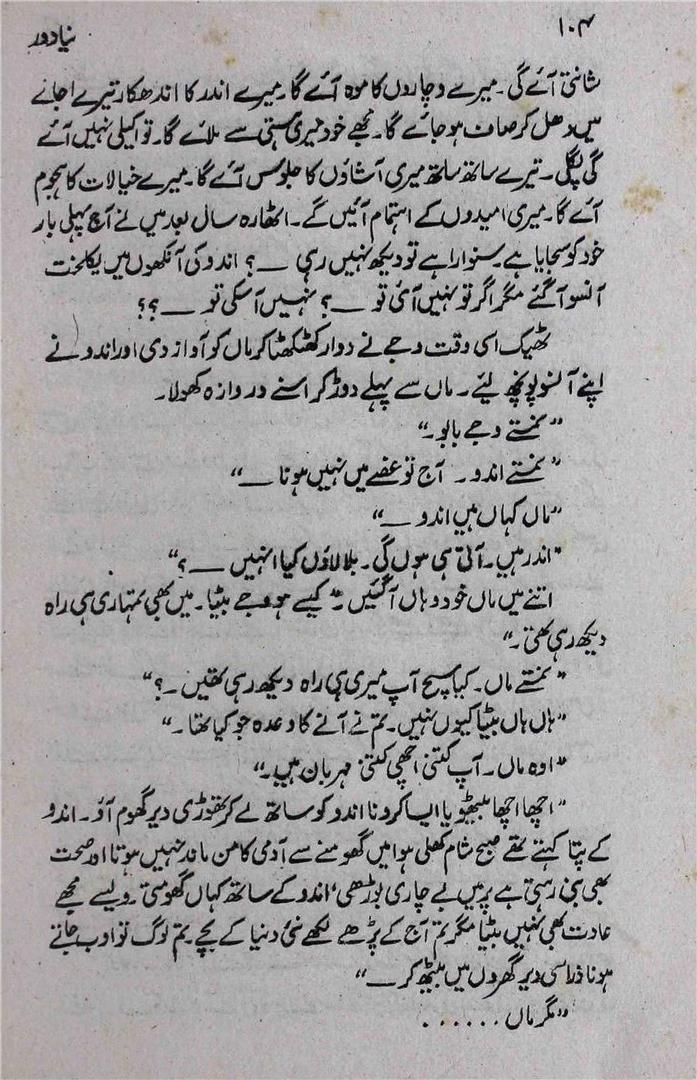 ۱۰۴
نیا دور
شانتی آئے گی۔ میرے وچاروں کا موہ آئے گا۔ میرے اندر کا اندھکار تیرے اجالے
میں دھل کر صاف ہو جائے گا۔ تجھے خود میری ہستی سے ملائے گا۔ تو اکیلی نہیں آئے
گی پگلی۔ تیرے ساتھ ساتھ میری آشاؤں کا جلوس آئے گا۔ میرے خیالات کا ہجوم
آئے گا۔ میری امیدوں کے اہتمام آئیں گے۔ اٹھارہ سال بعد میں نے آج پہلی بار
خود کو سجایا ہے۔ سنوارا ہے تو دیکھ نہیں رہی ــ؟ اندو کی آنکھوں میں یکلخت
آنسو آگئے مگر اگر تو نہیں آئی تو ــ؟ نہیں آسکی تو ــ؟؟
ٹھیک اسی وقت وجے نے دوار کھٹکھٹا کر ماں کو آواز دی اور اندو نے
اپنے آنسو پونچھ لیئے۔ ماں سے پہلے دوڑ کر اسنے دروازہ کھولا۔
”نمستے وجے بابو۔“
”نمستے اندو۔ آج تو غصے میں نہیں ہونا ــ“
”ماں کہاں ہیں اندو ــ“
”اندر ہیں۔ آتی ہی ہوں گی۔ بلا لاؤں کیا انہیں ــ؟“
اتنے میں ماں خود وہاں آگئیں۔ ”کیسے ہو وجے بیٹا۔ میں بھی تمہاری ہی راہ
دیکھ رہی تھی۔“
”نمستے ماں۔ کیا سچ آپ میری ہی راہ دیکھ رہی تھیں۔؟“
”ہاں ہاں بیٹا کیوں نہیں۔ تم نے آنے کا وعدہ جو کیا تھا۔“
”اوہ ماں۔ آپ کتنی اچھی کتنی مہربان ہیں۔“
”اچھا اچھا بیٹھو یا ایسا کرو نا اندو کو ساتھ لے کر تھوڑی دیر گھوم آؤ۔ اندو
کے پتا کہتے تھے صبح شام کھلی ہوا میں گھومنے سے آدمی کا من ماند نہیں ہوتا اور صحت
بھی بنی رہتی ہے پر میں بے چاری بوڑھی، اندو کے ساتھ کہاں گھومتی۔ ویسے مجھے
عادت بھی نہیں بیٹا مگر تم آج کے پڑھے لکھے نئی دنیا کے بچے۔ تم لوگ تو اوب جاتے
ہونا ذرا سی دیر گھروں میں بیٹھ کر ــ“
”مگر ماں ......